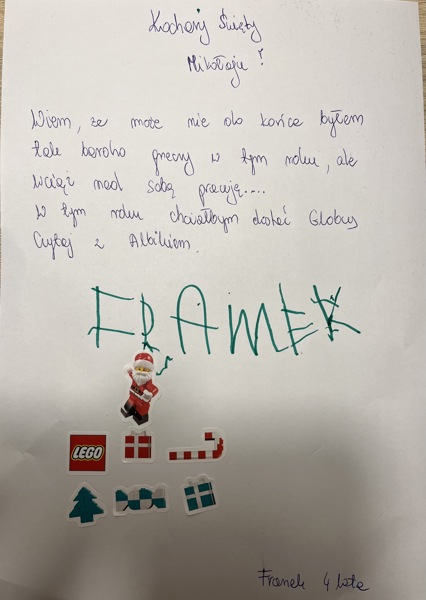 Kochany Święty
Mikołaju!
Wiem, że może nie do końca byłem
tak bardzo grzeczny w tym roku, ale
wciąż nad sobą pracuję....
w tym roku chciałbym dostać Globus
Czytaj z Albikiem.
FRANEK
LEGO
Franek 4 lata